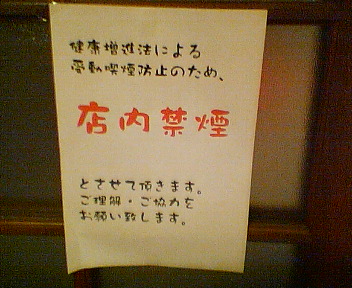 健康増進法による
受動喫煙防止のため、
店内禁煙
とさせて頂きます。
ご理解・ご協力を
お願い致します。